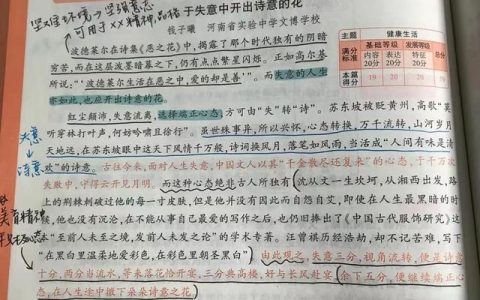 于失意中开出诗意的花
钱子曦　河南省实验中学文博学校
波德莱尔在诗集《恶之花》中，揭露了那个时代独有的阴暗
穷苦，而在这层浆暗幕之下，仍有点点繁星闪烁。正如高尔基
所说：“‘波德莱尔生活在恶之中，爱的却是善’”。而失意的人生
亦如此，也应开出诗意的花。
红尘颠沛，失意流离，选择端正心态，方可由“失”转“诗”。苏东坡被贬黄州，高歌“莫
听穿林打叶声，何妨吟啸且徐行”。虽世殊事异，所以兴怀，心态转换，万千流转，山河岁月
天地远，在苏东坡眼中这天下风情千万般，诗词换风月，落笔如风雨，当活成“人间有味是清
欢”的诗意。古往今来，面对人生失意，中国文人以其“千金散尽还复来”的心态，于千万次
失败中，守得云开见月明。而这种心态绝非古人所独有，沈从文一生坎坷，从湘西出发，路
上的荆棘刺破过他的每一寸皮肤，但是他并没有因此而自怨自艾，即使在人生最黑暗的时
候，他也没有沉沦，在不能从事自己最爱的写作之后，也仍旧捧出了《中国古代服饰研究》这
“至前人未至之境，发前人未发之论”的学术专著。汪曾祺历经浩劫，却不记苦难，写下
“在黑白里温柔地爱彩色，在彩色里朝圣黑白”。由此观之，失意三分，视角流转，便是诗意
十分，两分当流水，带来落花恰开宴，三分典高楼，好与长风赴宴，余下五分，便继续端正心
态，在人生途中擷下朵朵诗意之花。
主题　健康生活
满分标准　基础等级　发展等级
内容20分　表达20分　特征20分
本篇得分　19　20
可用于××精神品格
失意
诗意